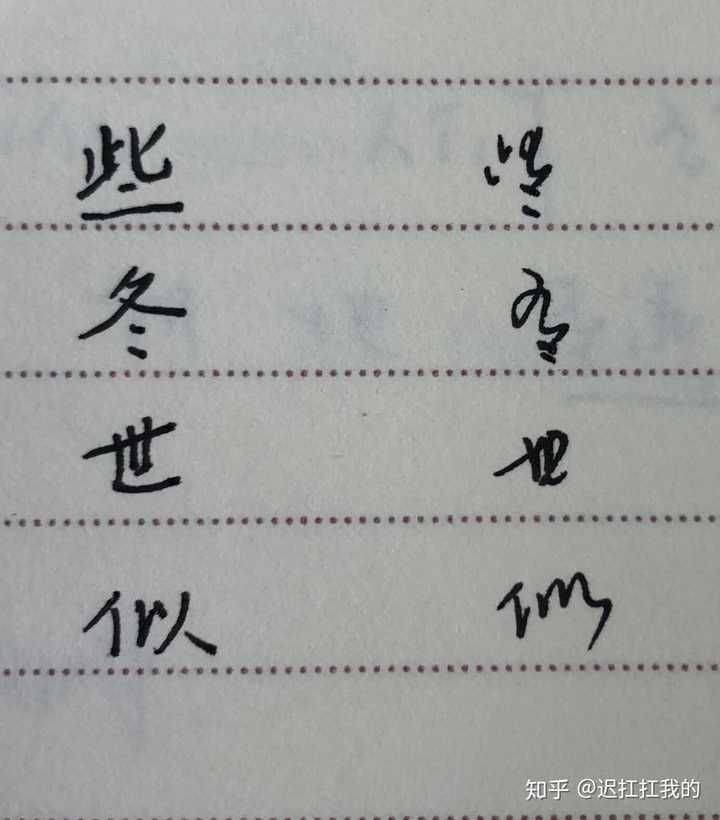 些 些
冬 冬
世 世
似 似
知乎 @迟扛扛我的